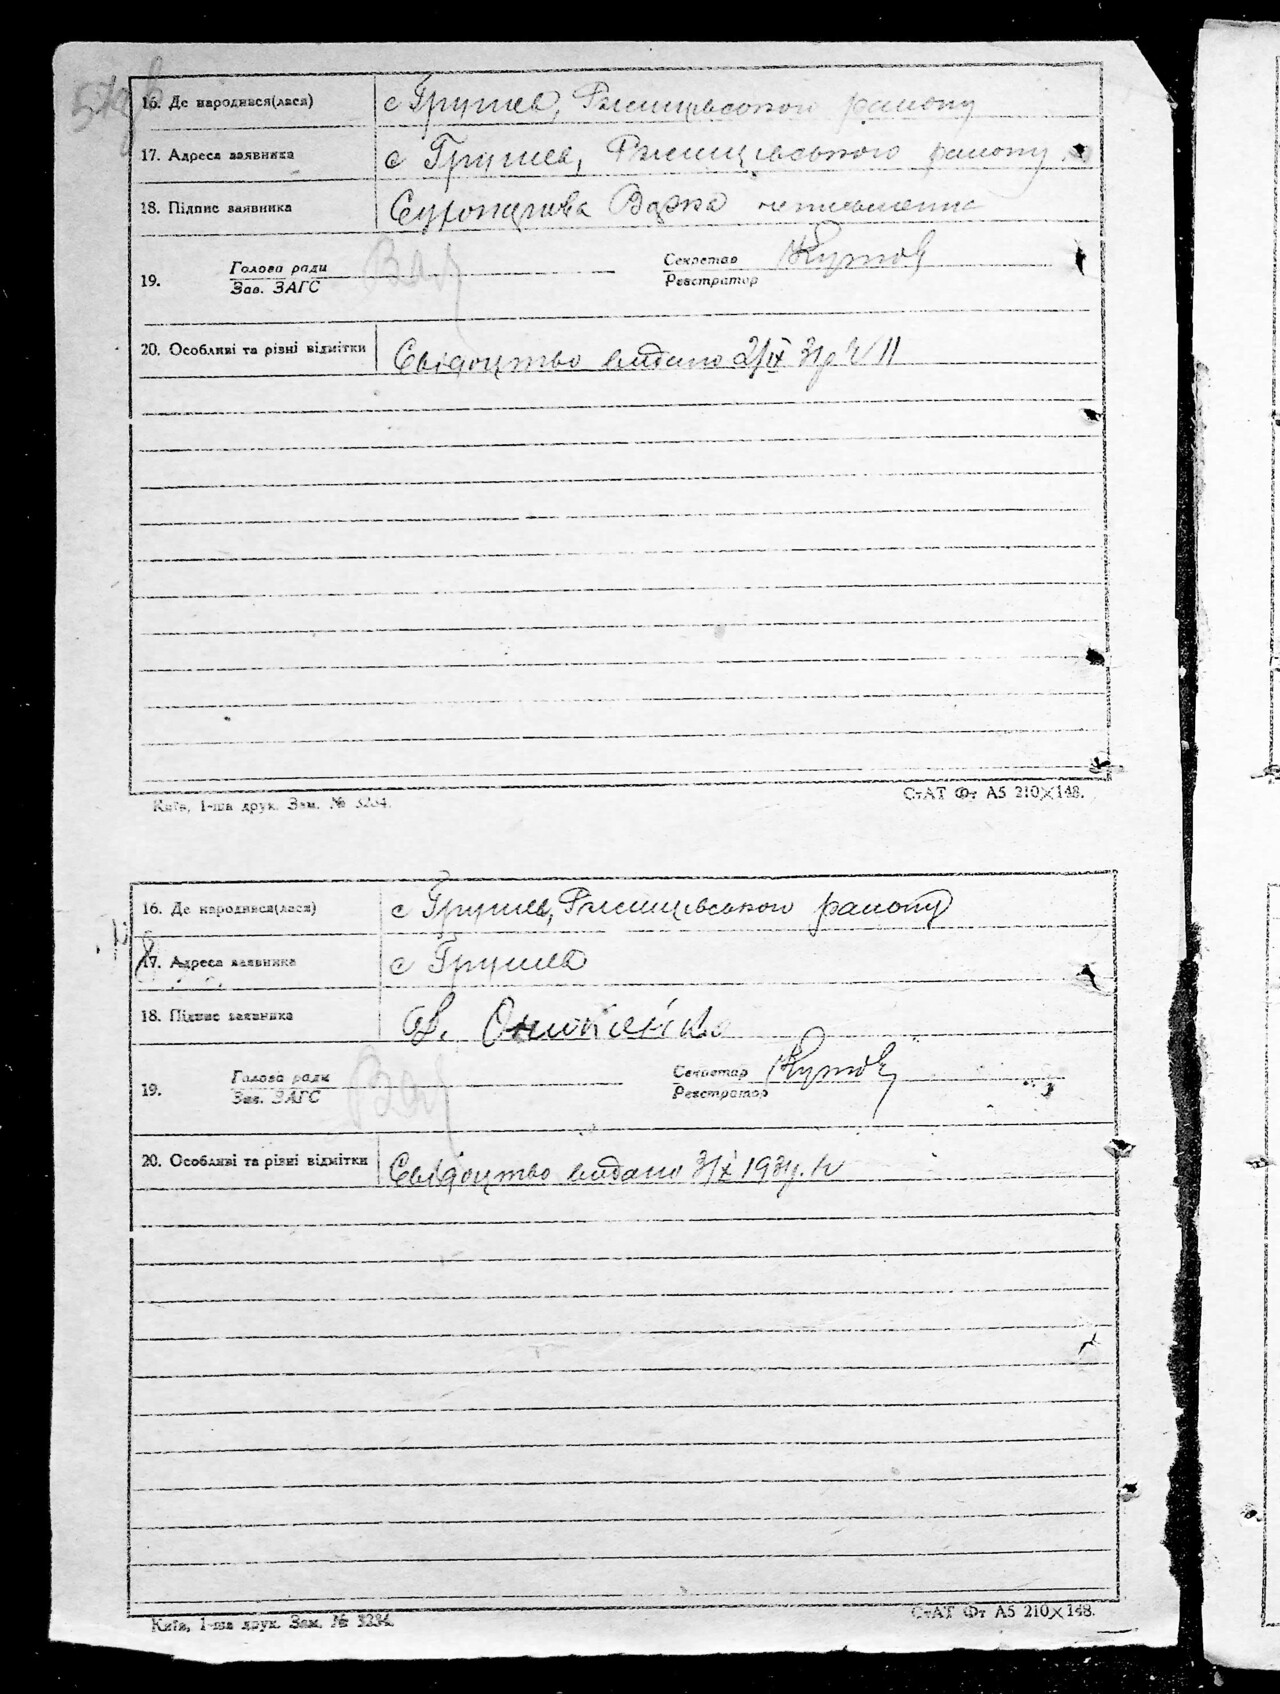 16. Де народився(лася) с Грушев, Ржищівського району
17. Адреса заявника с Грушев, Ржищівського району
18. Підпис заявника Варка неписьменна
19. Голова ради Секретар
Зав. ЗАГС Реєстратор
20. Особливі та різні відмітки Свідоцтво видано 2/ІХ 37р № 11
Київ, 1-ша друк. Зам. № 3234. СтАТ Фт А5 210×148.
16. Де народився(лася) с Грушев, Ржищівського району
17. Адреса заявника с Грушев
18. Підпис заявника Онипіенко
19. Голова ради Секретар
Зав. ЗАГС Реєстратор
20. Особливі та різні відмітки Свідоцтво видано
Київ, 1-ша друк. Зам. № 3234. СтАТ Фт А5 210×148.